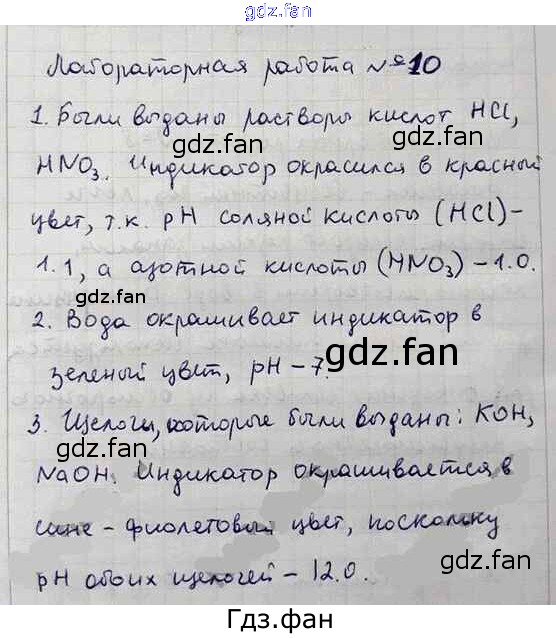 gdz.фан
Лабораторная работа №10
1. Были выданы растворы кислот HCl,
gdz.фан
HNO3. Индикатор окрасился в красный
цвет, т.к. pH соляной кислоты (HCl)-
1.1, а азотной кислоты (HNO3) - 1.0.
gdz.фан
2. Вода окрашивает индикатор в
зеленый цвет, pH - 7.
gdz.фан
3. Щелочи, которые были выданы: KOH,
gdz.фан
NaOH. Индикатор окрашивается в
сине-фиолетовый цвет, поскольку
gdz.фан
pH обоих щелочей - 12.0.
Гдз.фан